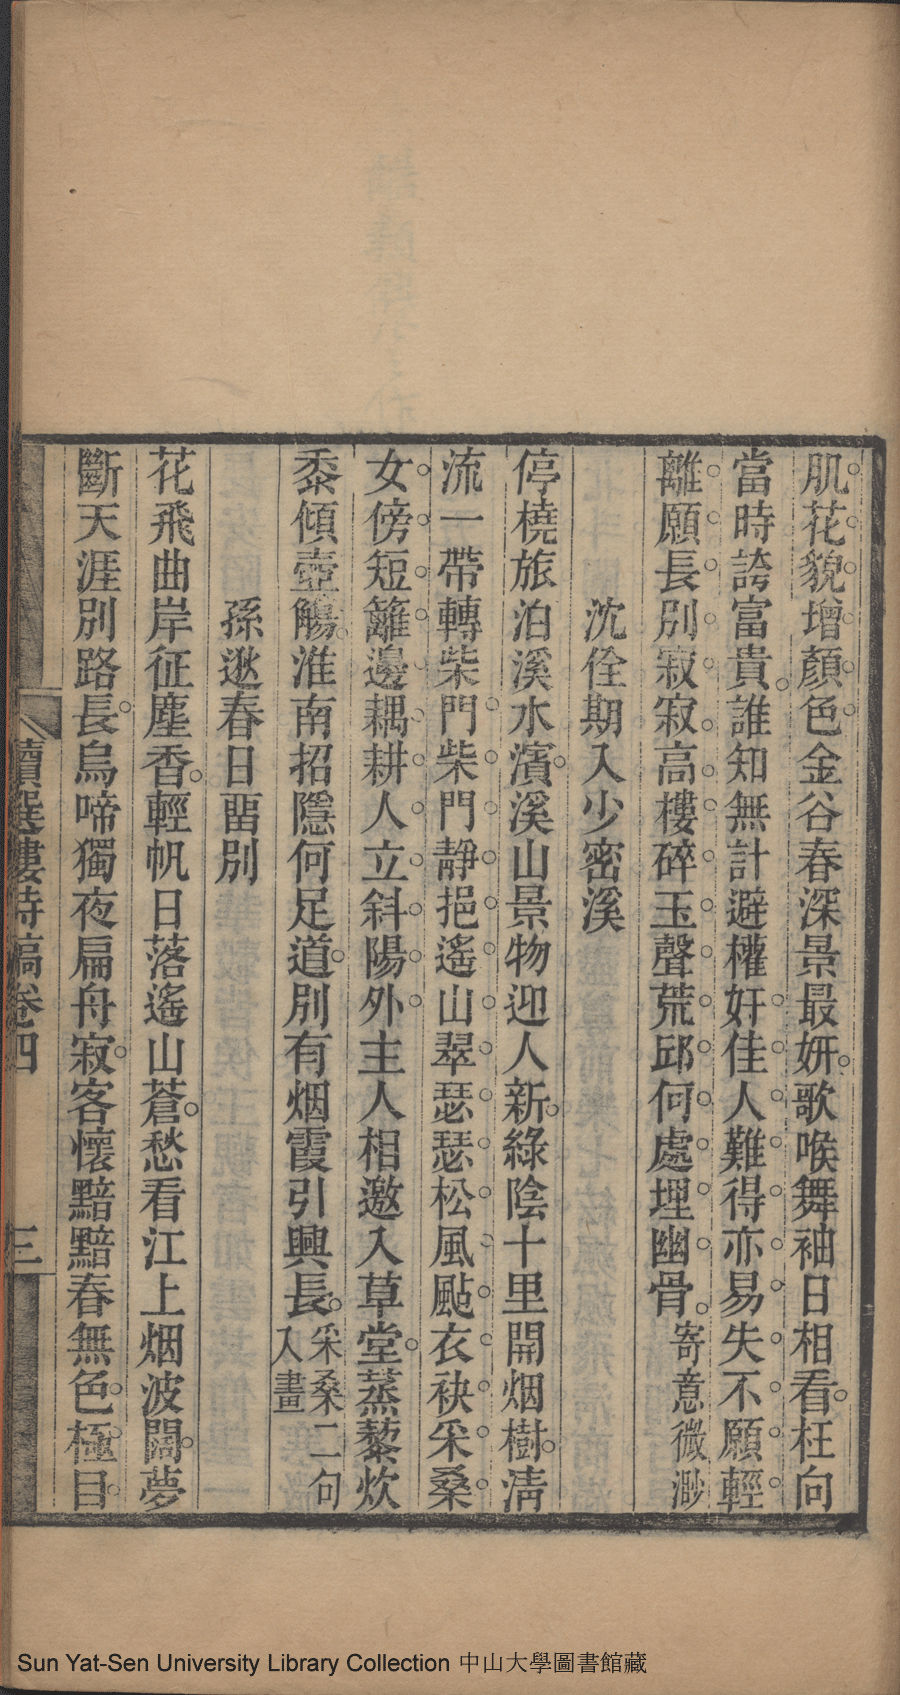 肌花貌增顏色金谷春深景最妍歌喉舞袖日相看枉向
當時誇富貴誰知無計避權奸佳人難得亦易失不願輕
離願長別寂寂高樓碎玉聲荒邱何處埋幽骨寄意微渺
沈佺期入少密溪
停橈旅泊溪水濱溪山景物迎人新綠陰十里開烟樹清
流一帶轉柴門柴門靜挹遙山翠瑟瑟松風颭衣袂采桑
女傍短籬邊耦耕人立斜陽外主人相邀入草堂蒸藜炊
黍傾壺觴淮南招隱何足道別有烟霞引興長采桑二句
入畫
孫逖春日畱別
花飛曲岸征塵香輕帆日落遙山蒼愁看江上烟波闊夢
斷天涯別路長烏啼獨夜扁舟寂客懷黯黯春無色極目
讀選樓詩稿卷四
三
Sun Yat-Sen University Library Collection 中山大學圖書館藏